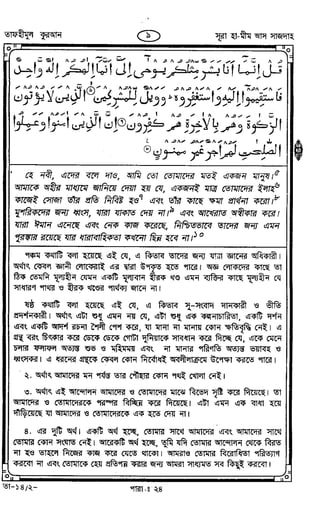 তাফহীমুল কুরআন
৯
সূরা হা-মীম আস সাজদাহ
قُلْ إِنَّمَا أَنَا بَشَرٌ مِّثْلُكُمْ يُوحَىٰ إِلَيَّ أَنَّمَا إِلَٰهُكُمْ إِلَٰهٌ وَاحِدٌ
فَاسْتَقِيمُوا إِلَيْهِ وَاسْتَغْفِرُوهُ وَوَيْلٌ لِّلْمُشْرِكِينَ ۝ الَّذِينَ لَا يُؤْتُونَ
الزَّكَاةَ وَهُم بِالْآخِرَةِ هُمْ كَافِرُونَ ۝ إِنَّ الَّذِينَ آمَنُوا وَعَمِلُوا
الصَّالِحَاتِ لَهُمْ أَجْرٌ غَيْرُ مَمْنُونٍ ۝
হে নবী, এদের বলে দাও, আমি তো তোমাদের মতই একজন মানুষ।
আমাকে অহীর মাধ্যমে জানিয়ে দেয়া হয় যে, একজনই মাত্র তোমাদের ইলাহ
কাজেই সোজা তাঁর প্রতি নিবিষ্ট হও এবং তাঁর কাছে ক্ষমা প্রার্থনা করো।
মুশরিকদের জন্য ধ্বংস, যারা যাকাত দেয় না। এবং আখেরাত অস্বীকার করে।
যারা ঈমান এনেছে এবং নেক কাজ করেছে, নিশ্চিতভাবে তাদের জন্য এমন
পুরস্কার রয়েছে যার ধারাবাহিকতা কখনো ছিন্ন হবে না।১০
পঞ্চম কথাটি বলা হয়েছে এই যে, এ কিতাব তাদের জন্য যারা জ্ঞানের অধিকারী।
অর্থাৎ কেবল জ্ঞানী লোকেরাই এর দ্বারা উপকৃত হতে পারে। অজ্ঞ লোকদের কাছে তা
ঠিক তেমনি মূল্যহীন যেমন একটি মূল্যবান হীরক খণ্ড এমন ব্যক্তির কাছে মূল্যহীন যে
সাধারণ পাথর ও হীরক খণ্ডের পার্থক্য জানে না।
ষষ্ঠ কথাটি বলা হয়েছে এই যে, এ কিতাব সু-সংবাদ দানকারী ও ভীতি
প্রদর্শনকারী। অর্থাৎ এটা শুধু এমন নয় যে, এটা শুধু এক কল্পনাচারিতা, একটি দর্শন
এবং একটি আদর্শ রচনা শৈলী পেশ করে, যা মানা না মানায় কোন ক্ষতিবৃদ্ধি নেই। এ
গ্রন্থ বরং চিৎকার করে ডেকে ডেকে গোটা দুনিয়াকে সাবধান করে দিচ্ছে যে, একে মেনে
চলার ফলাফল অত্যন্ত শুভ ও মহিমময় এবং না মানার পরিণতি অত্যন্ত ভয়াবহ ও
ধ্বংসকর। এ ধরনের গ্রন্থকে কেবল কোন নির্বোধই অবলীলাক্রমে উপেক্ষা করতে পারে।
২. অর্থাৎ আমাদের মন পর্যন্ত তার পৌঁছার কোন পথই খোলা নেই।
৩. অর্থাৎ এই আন্দোলন আমাদের ও তোমাদের মাঝে বিভেদ সৃষ্টি করে দিয়েছে। তা
আমাদের ও তোমাদেরকে পরস্পর বিচ্ছিন্ন করে দিয়েছে। এটা এমন এক বাধা হয়ে
দাঁড়িয়েছে যা আমাদের ও তোমাদেরকে এক হতে দেয় না।
৪. এর দু'টি অর্থ। একটি অর্থ হচ্ছে, তোমার সাথে আমাদের এবং আমাদের সাথে
তোমার কোন সংঘাত নেই। আরেকটি অর্থ হচ্ছে, তুমি যদি তোমার আন্দোলন থেকে বিরত
না হও তাহলে নিজের কাজ করে যেতে থাকো। আমরাও তোমার বিরোধিতা পরিত্যাগ
করবো না এবং তোমাকে হেয় প্রতিপন্ন করার জন্য আমরা সাধ্যমত সব কিছুই করবো।
তা-১৪/২-
পারা : ২৪